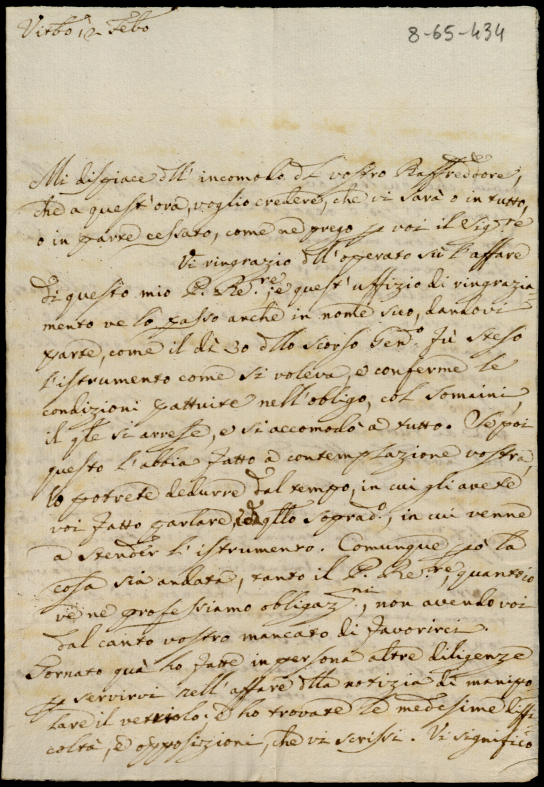 Vitbo 12 Febo
8-65-434
Mi dispiace dll' incomolo dl vostro Raffreddore,
che a quest'ora, voglio credere, che vi sarà o in tutto,
o in parte cessato, come ne prego p voi il Sigre
Vi ringrazio dll'operato sù l'affare
di questo mio P. Rere, e quest'uffizio di ringrazia-
mento ve lo passo anche in nome suo, dandovi
parte, come il dì 30 dllo scorso Geno fù steso
l'istrumento come si voleva, e conferme le
condizioni pattuite nell'obligo, col Somaini,
il qle si arrese, e si accomodò a tutto. Se poi
questo l'abbia fatto a contemplazione vostra,
lo potrete dedurre dal tempo, in cui gli avete
voi fatto parlare, e da qllo soprado, in cui venne
a stender l'istrumento. Comunque pò la
cosa sia andata, tanto il P. Rere, quanto io
ve ne professiamo obligazni, non avendo voi
dal canto vostro mancato di favorirci.
Tornato quà ho fatte in persona altre diligenze
p servirvi nell'affare dlla notizia di manipo
lare il vetriolo: ed ho trovate le medesime diffi
coltà, ed opposizioni, che vi scrissi. Vi significo